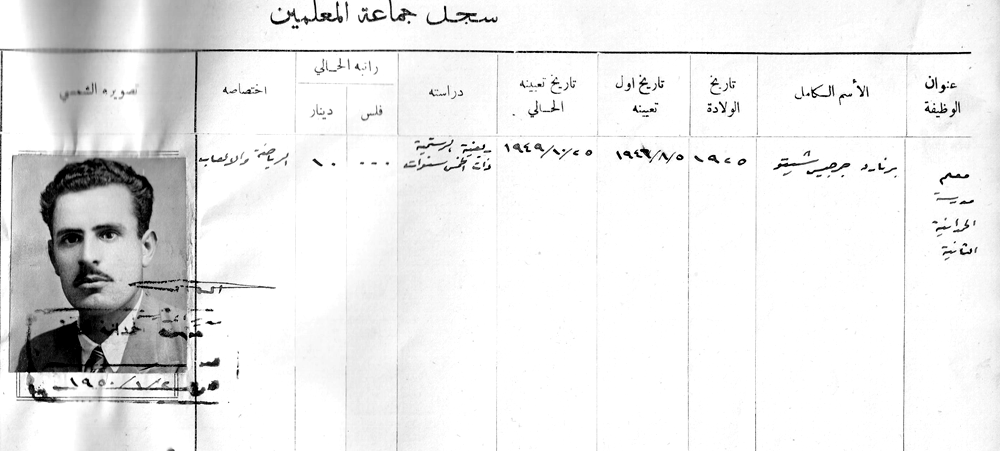 سجل جماعة المعلمين
عنوان الوظيفة
الأسم الكامل
تاريخ الولادة
تاريخ اول تعيينه
تاريخ تعيينه الحالي
دراسته
راتبه الحالي
فلس
دينار
اختصاصه
تصويره الشمسي
معلم
مدرسة
الحمدانية
الثانية
برنارد جرجيس شيتو
١٩٢٥
١٩٤٩/٨/٥
١٩٤٩/١٠/٢٥
ريفية الرستمية
ذات الخمس سنوات
٠٠٠
١٠
الرياضة والالعاب
١٩٥٠/١/٢